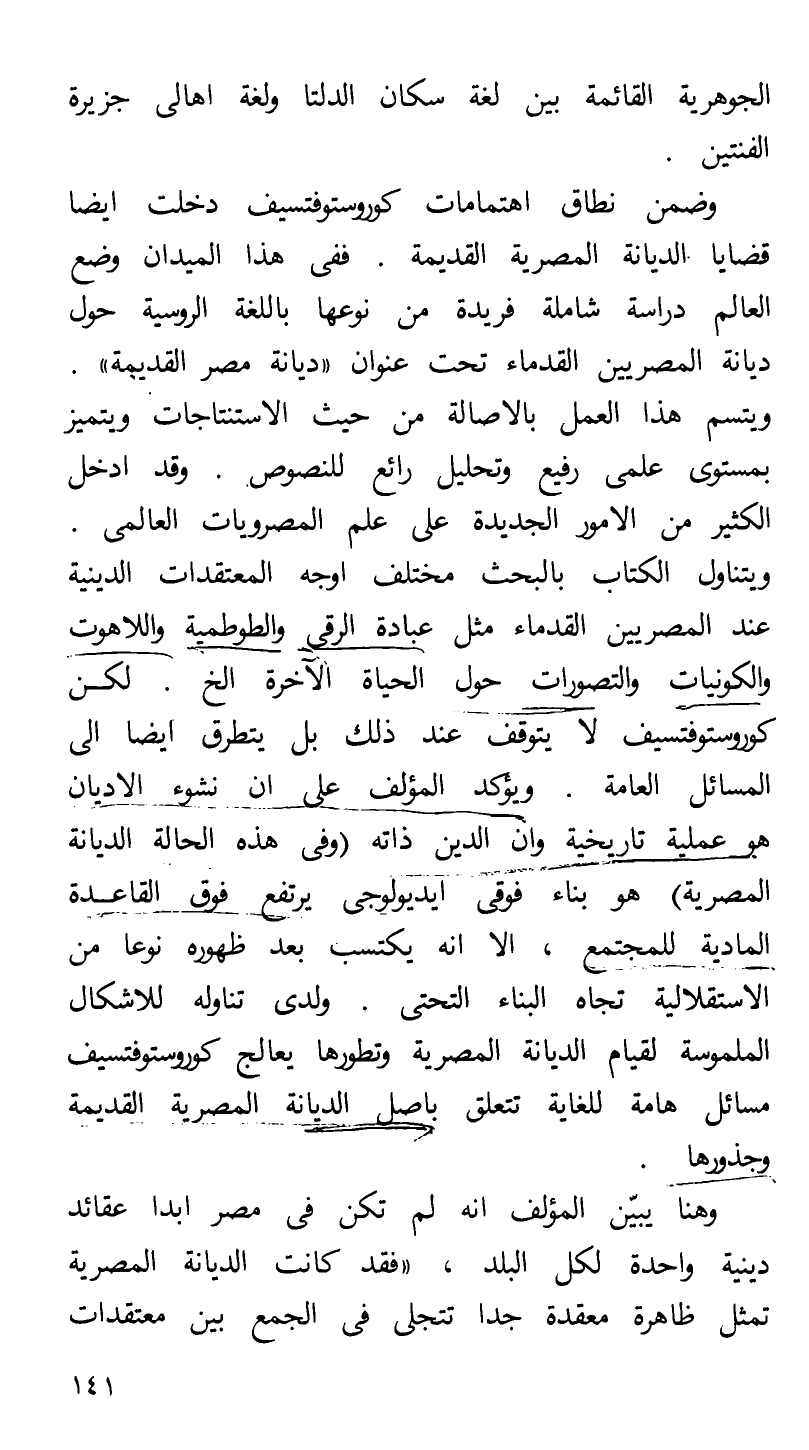 الجوهرية القائمة بين لغة سكان الدلتا ولغة اهالى جزيرة
الفنتين .
وضمن نطاق اهتمامات كوروستوفتسيف دخلت ايضا
قضايا الديانة المصرية القديمة . ففى هذا الميدان وضع
العالم دراسة شاملة فريدة من نوعها باللغة الروسية حول
ديانة المصريين القدماء تحت عنوان «ديانة مصر القديمة» .
ويتسم هذا العمل بالاصالة من حيث الاستنتاجات ويتميز
بمستوى علمى رفيع وتحليل رائع للنصوص . وقد ادخل
الكثير من الامور الجديدة على علم المصرويات العالمى .
ويتناول الكتاب بالبحث مختلف اوجه المعتقدات الدينية
عند المصريين القدماء مثل عبادة الرقى والطوطمية واللاهوت
والكونيات والتصورات حول الحياة الآخرة الخ . لكـن
كوروستوفتسيف لا يتوقف عند ذلك بل يتطرق ايضا الى
المسائل العامة . ويؤكد المؤلف على ان نشوء الاديان
هو عملية تاريخية وان الدين ذاته (وفى هذه الحالة الديانة
المصرية) هو بناء فوقى ايديولوجى يرتفع فوق القاعـدة
المادية للمجتمع ، الا انه يكتسب بعد ظهوره نوعا من
الاستقلالية تجاه البناء التحتى . ولدى تناوله للاشكال
الملموسة لقيام الديانة المصرية وتطورها يعالج كوروستوفتسيف
مسائل هامة للغاية تتعلق باصل الديانة المصرية القديمة
وجذورها .
وهنا يبيّن المؤلف انه لم تكن فى مصر ابدا عقائد
دينية واحدة لكل البلد ، «فقد كانت الديانة المصرية
تمثل ظاهرة معقدة جدا تتجلى فى الجمع بين معتقدات
١٤١